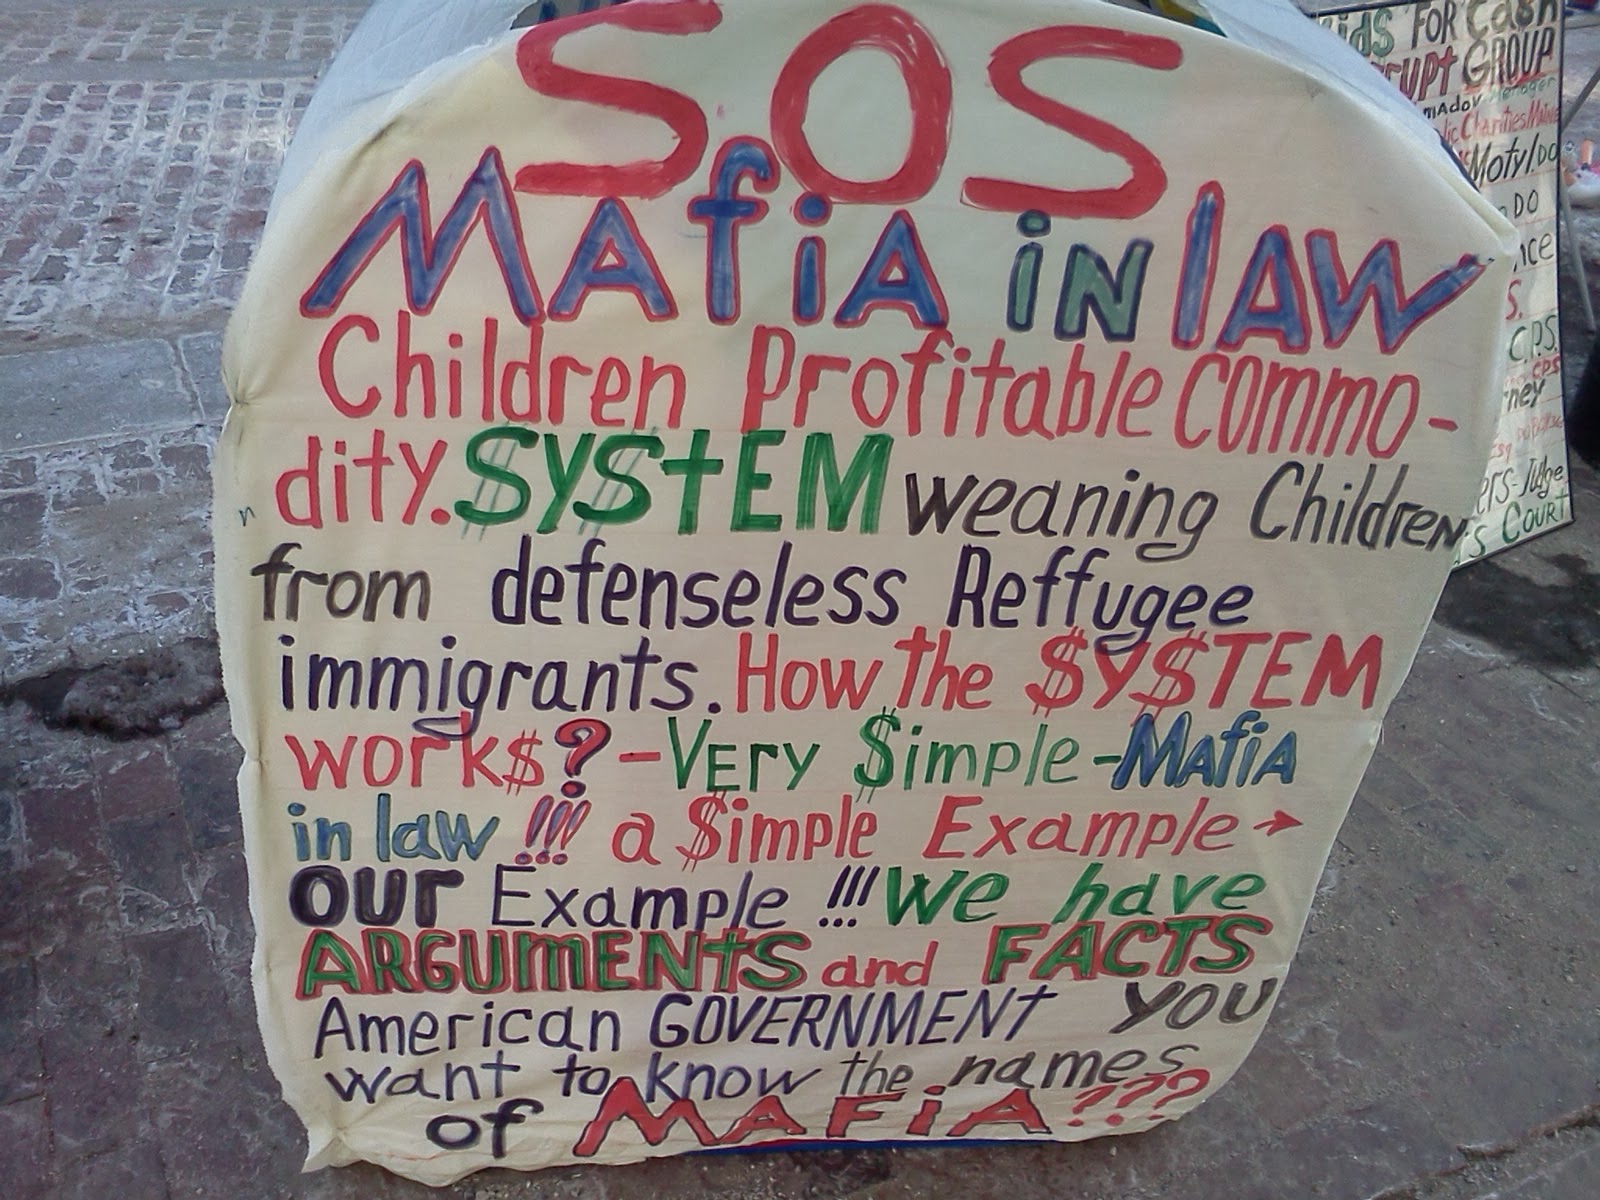 SOS
MAfiA iN lAW
Children Profitable COmmO-
dity. $Y$tEM weaning ChildreN
from defenseless Reffugee
immigrants. How the $Y$TEM
work$? - VEry $imple - MAfiA
in law !!! a $imple Example →
OUr Example !!! We have
ARGUmENtS and FACTS
American GOVERNMENT YOU
want to know the names
of MAFiA???
FOR Cash
GROUP
Charities
Motyl DO
DO
S.
C.P.S.
CPS
Judge
COURT